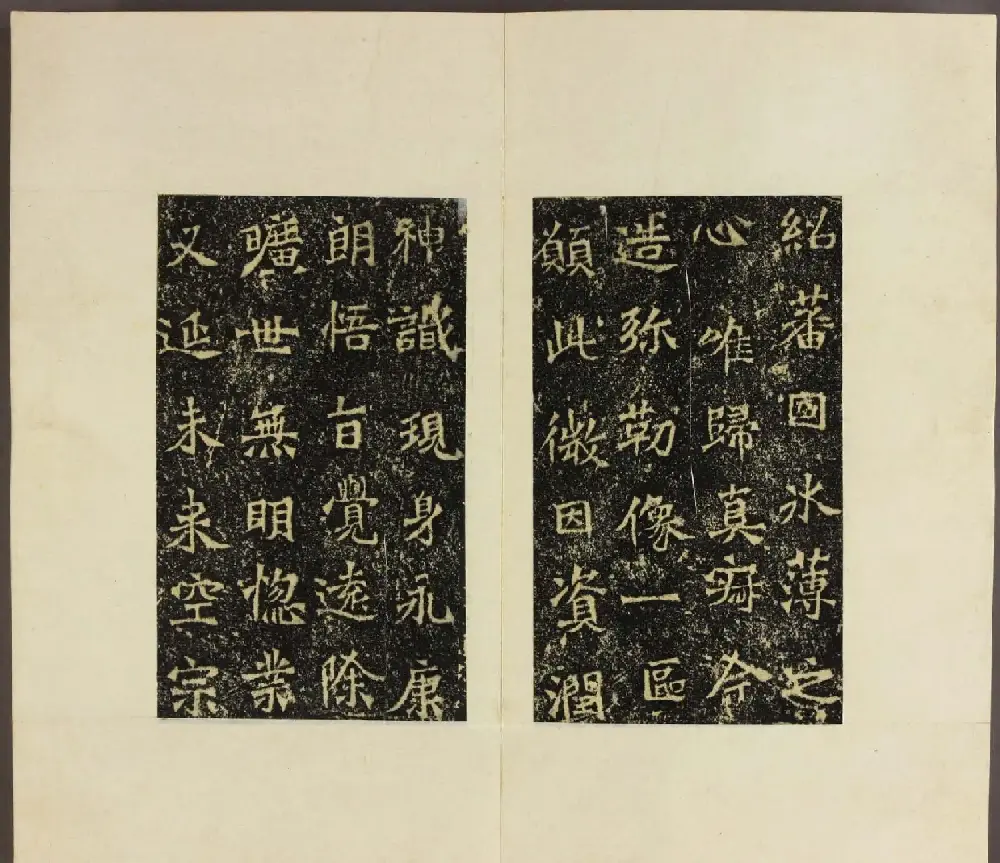 紹蕃國氷薄之
心唯歸真寂今
造弥勒像一區
願此微因資潤
神識現身永康
朗悟旨覺遠除
曠世無明惚業
又延未来空宗